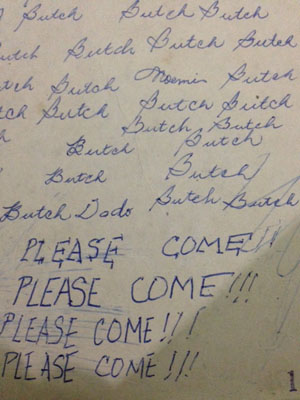 Butch Butch Butch
Butch Butch Butch Butch
Butch Butch
Butch Butch Butch
Butch Butch
Butch Butch
Butch Butch
Butch Dodo Butch Butch
PLEASE COME!!
PLEASE COME!!!
PLEASE COME!!!
PLEASE COME!!!
1